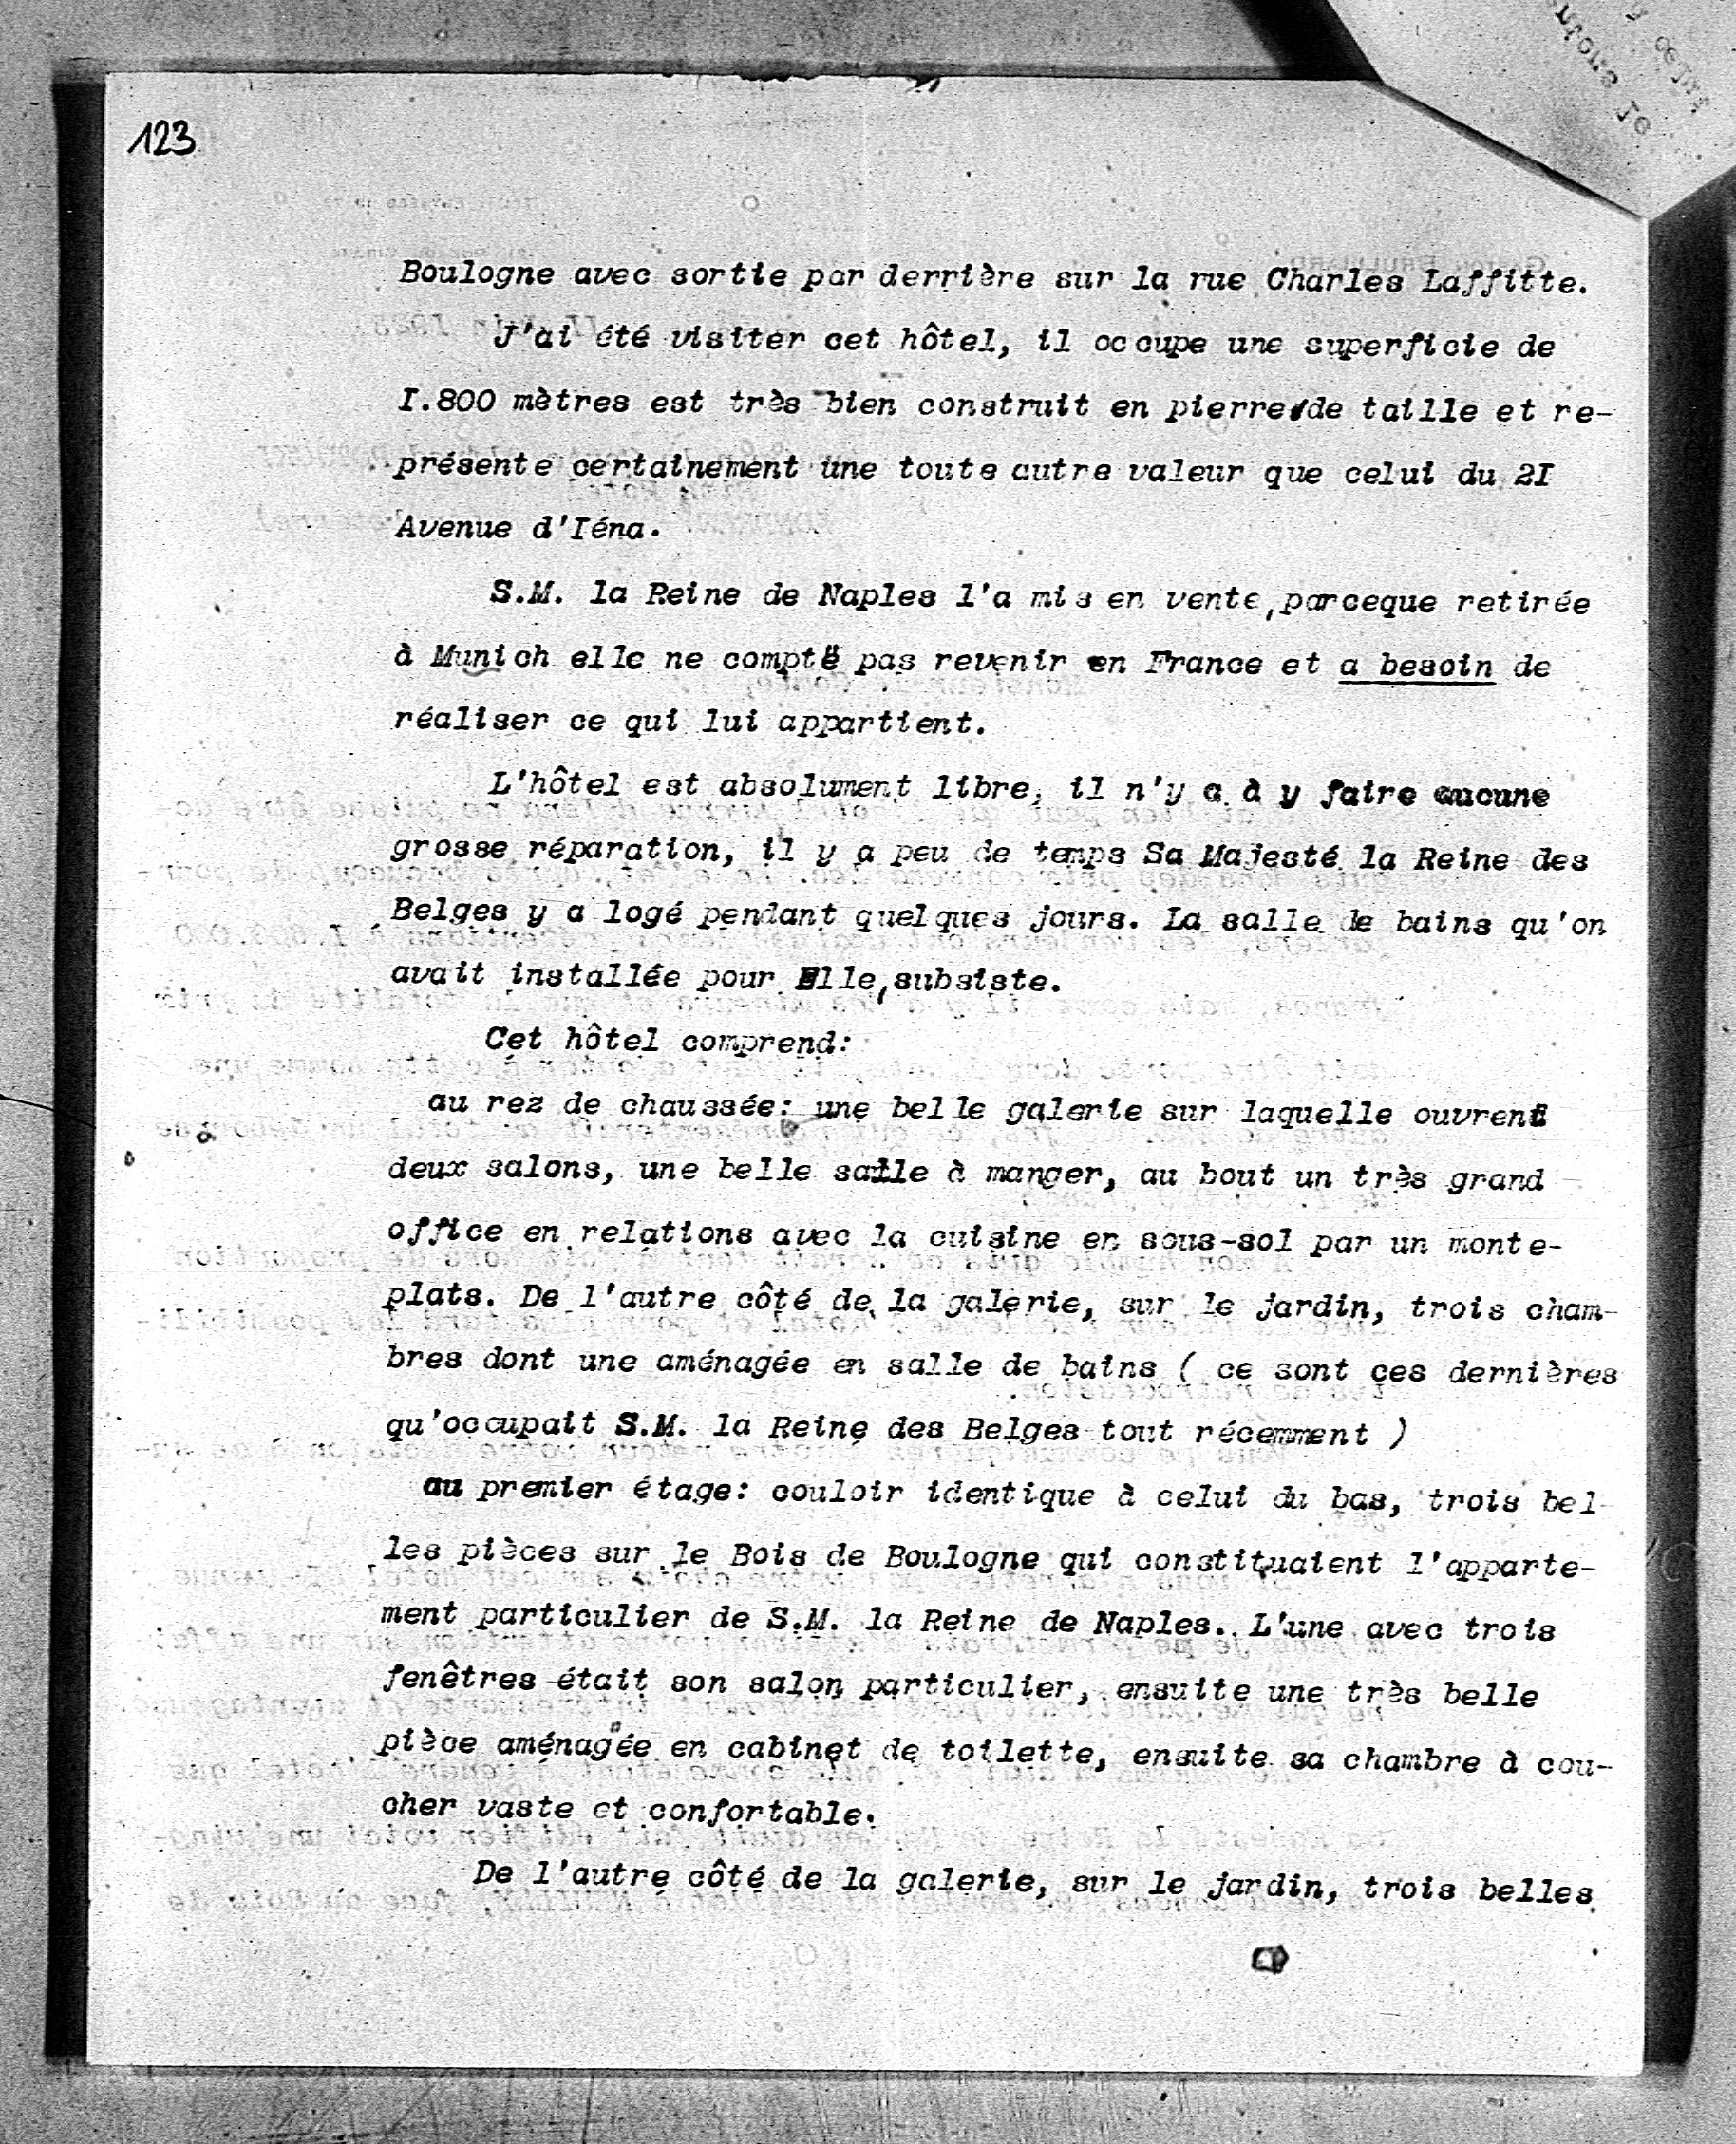 123
Boulogne avec sortie par derrière sur la rue Charles Laffitte.
J'ai été visiter cet hôtel, il occupe une superficie de
I.800 mètres est très bien construit en pierre de taille et re-
présente certainement une toute autre valeur que celui du 2I
Avenue d'Iéna.
S.M. la Reine de Naples l'a mis en vente, parceque retirée
à Munich elle ne compte pas revenir en France et a besoin de
réaliser ce qui lui appartient.
L'hôtel est absolument libre, il n'y a à y faire aucune
grosse réparation, il y a peu de temps Sa Majesté la Reine des
Belges y a logé pendant quelques jours. La salle de bains qu'on
avait installée pour Elle, subsiste.
Cet hôtel comprend:
au rez de chaussée: une belle galerie sur laquelle ouvrent
deux salons, une belle salle à manger, au bout un très grand
office en relations avec la cuisine en sous-sol par un monte-
plats. De l'autre côté de la galerie, sur le jardin, trois cham-
bres dont une aménagée en salle de bains ( ce sont ces dernières
qu'occupait S.M. la Reine des Belges tout récemment )
au premier étage: couloir identique à celui du bas, trois bel-
les pièces sur le Bois de Boulogne qui constituaient l'apparte-
ment particulier de S.M. la Reine de Naples. L'une avec trois
fenêtres était son salon particulier, ensuite une très belle
pièce aménagée en cabinet de toilette, ensuite sa chambre à cou-
cher vaste et confortable.
De l'autre côté de la galerie, sur le jardin, trois belles